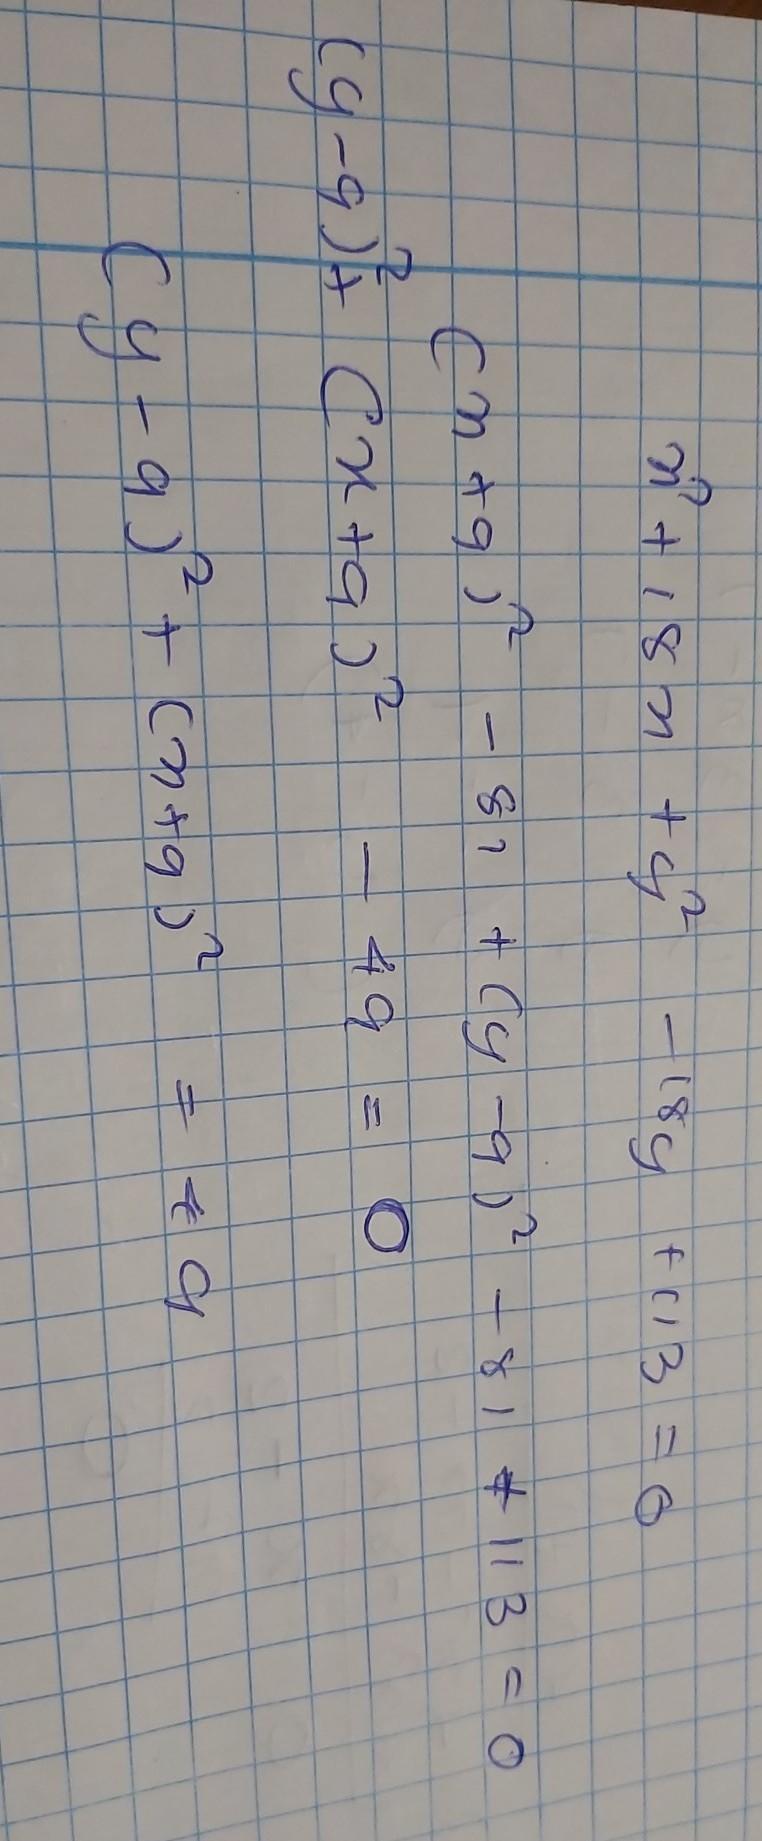 x² + 18x + y² - 18y + 113 = 0
(x + 9)² - 81 + (y - 9)² - 81 + 113 = 0
(y - 9)² + (x + 9)² - 49 = 0
(y - 9)² + (x + 9)² = 49